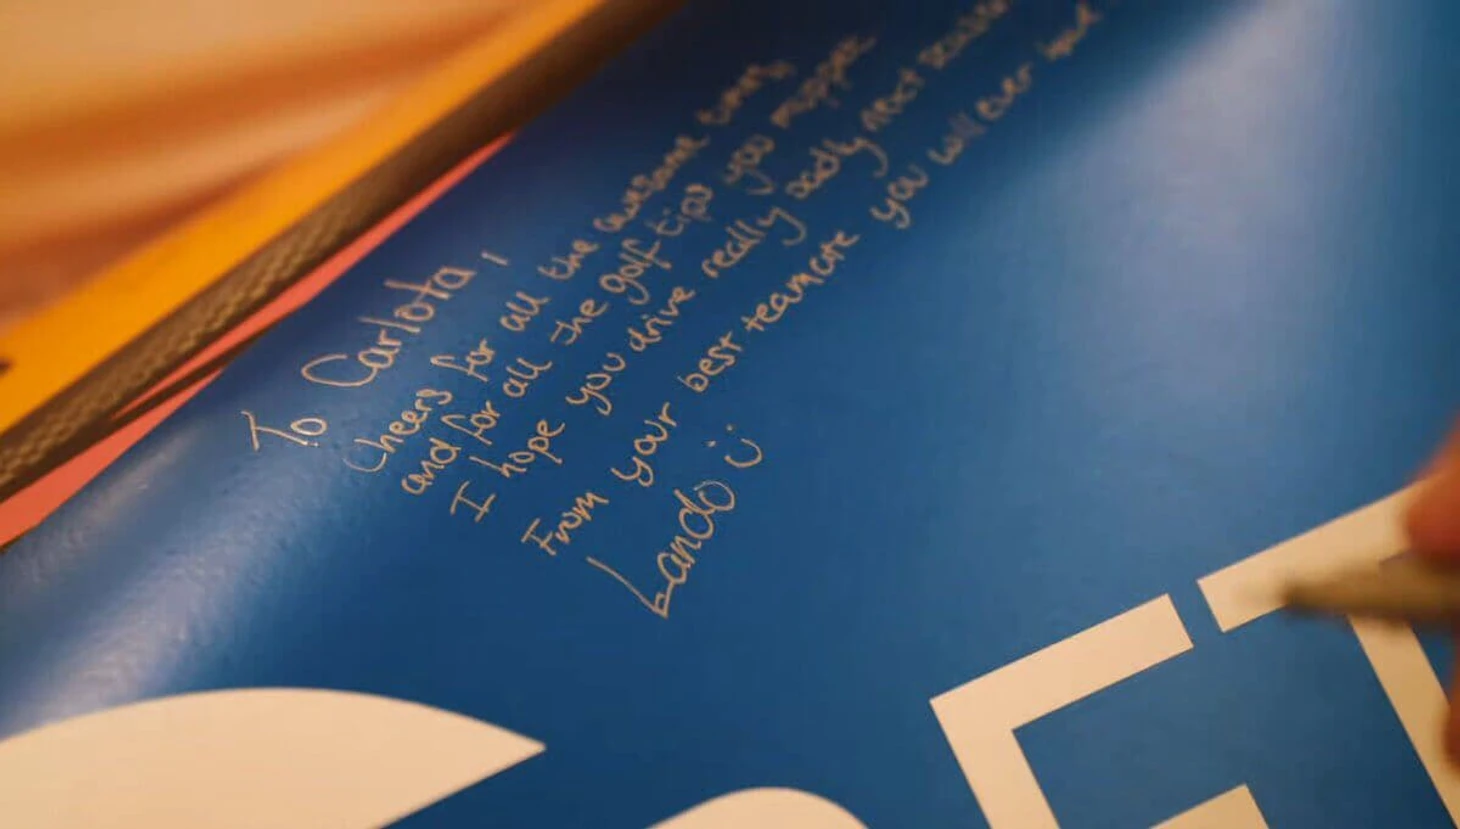 To Carlota,
Cheers for all the awesome times,
and for all the golf tips you muppet.
I hope you drive really badly next season
From your best teamate you will ever have
Lando :)